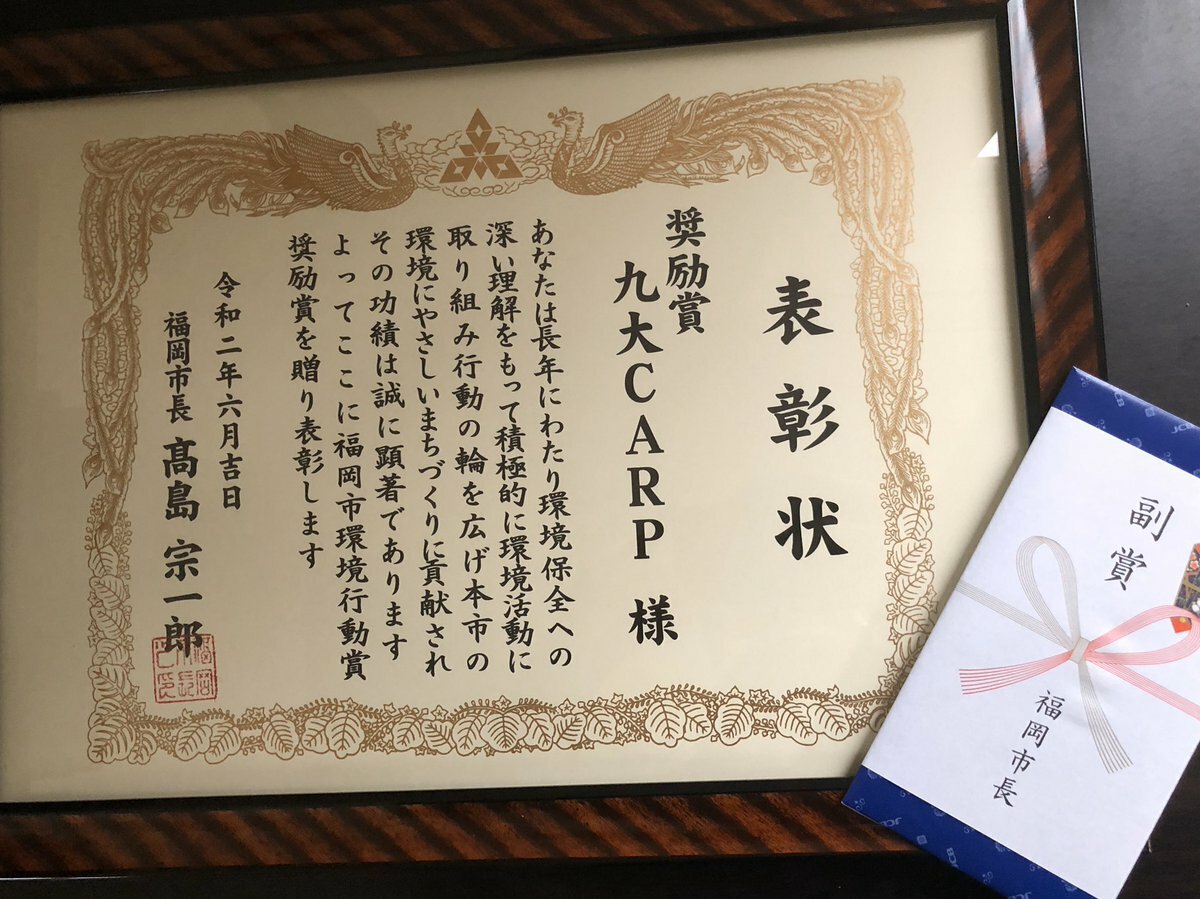 表彰状
奨励賞
九大CARP 様
あなたは長年にわたり環境保全への
深い理解をもって積極的に環境活動に
取り組み行動の輪を広げ本市の
環境にやさしいまちづくりに貢献され
その功績は誠に顕著であります
よってここに福岡市環境行動賞
奨励賞を贈り表彰します
令和二年六月吉日
福岡市長 髙島 宗一郎
副賞
福岡市長
JCB